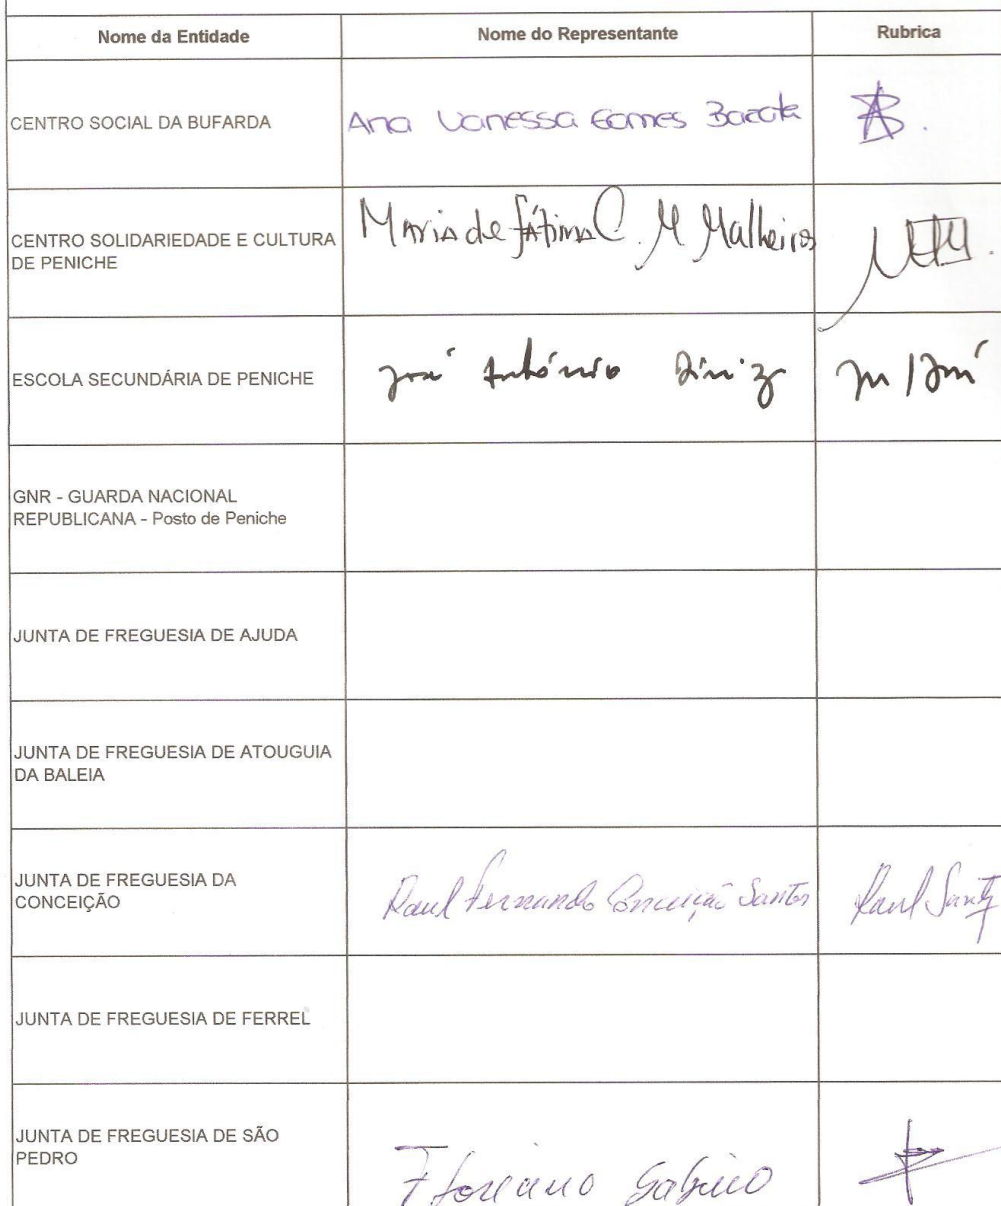 Nome da Entidade Nome do Representante Rubrica
CENTRO SOCIAL DA BUFARDA Ana Vanessa Gomes Barata
CENTRO SOLIDARIEDADE E CULTURA
DE PENICHE
Maria de Fátima C. M Malheiros
ESCOLA SECUNDÁRIA DE PENICHE José António Diniz
GNR - GUARDA NACIONAL
REPUBLICANA - Posto de Peniche
JUNTA DE FREGUESIA DE AJUDA
JUNTA DE FREGUESIA DE ATOUGUIA
DA BALEIA
JUNTA DE FREGUESIA DA
CONCEIÇÃO
Raul Fernando Conceição Santos Raul Santos
JUNTA DE FREGUESIA DE FERREL
JUNTA DE FREGUESIA DE SÃO
PEDRO
Floriano Sabino